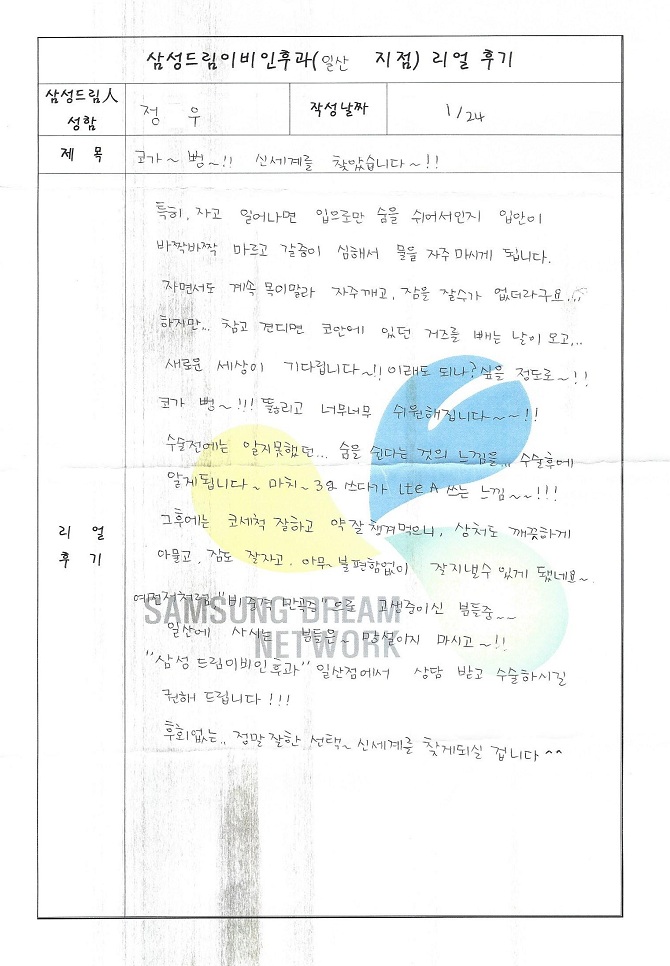 삼성드림이비인후과(일산 지점) 리얼 후기
삼성드림人 성함
정 우
작성날짜
1/24
제 목
코가~ 뻥~!! 신세계를 찾았습니다~!!
리 얼
후 기
특히, 자고 일어나면 입으로만 숨을 쉬어서인지 입안이
바짝바짝 마르고 갈증이 심해서 물을 자주 마시게 됩니다.
자면서도 계속 목이말라 자주깨고, 잠을 잘수가 없더라구요...
하지만... 참고 견디면 코안에 있던 거즈를 빼는 날이 오고...
새로운 세상이 기다립니다~!! 이래도 되나? 싶을 정도로~!!
코가 뻥~!!! 뚫리고 너무너무 쉬원해집니다~~!!
수술전에는 알지못했던... 숨을 쉰다는 것의 느낌을... 수술후에
알게됩니다~ 마치~ 3G 쓰다가 LteA 쓰는 느낌~~!!!
그후에는 코세척 잘하고 약 잘 챙겨먹으니, 상처도 깨끗하게
아물고, 잠도 잘자고, 아무~ 불편함없이 잘지낼수 있게 됐네요~
예전저처럼 "비중격 만곡증"으로 고생중이신 분들중~~
일산에 사시는 분들은~ 망설이지 마시고~!!
"삼성 드림이비인후과" 일산점에서 상담 받고 수술하시길
권해 드립니다!!!
후회없는.. 정말 잘한 선택~ 신세계를 찾게되실 겁니다^^
SAMSUNG DREAM
NETWORK